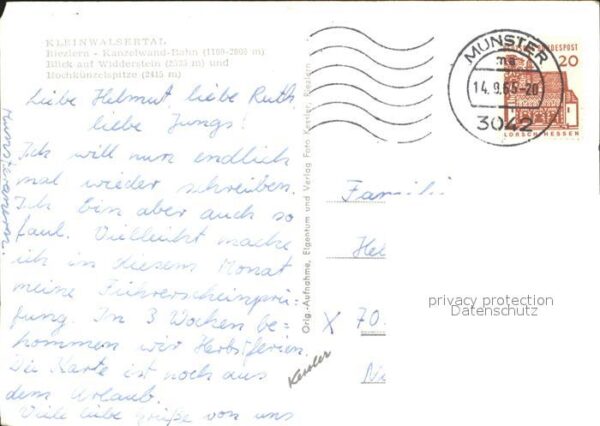 KLEINWALSERTAL
Riezlern - Kanzelwand-Bahn (1100-2000 m)
Blick auf Widderstein (2535 m) und
Hochkünzelspitze (2415 m)
Liebe Helmut, liebe Ruth,
liebe Jungs!
Ich will nun endlich
mal wieder schreiben.
Ich bin aber auch so
faul. Vielleicht mache
ich in diesem Monat
meine Führerscheinprü-
fung. In 3 Wochen be-
kommen wir Herbstferien.
Die Karte ist noch aus
dem Urlaub.
Viele liebe Grüße von uns
Orig.-Aufnahme, Eigentum und Verlag Foto Kessler, Riezlern
MUNSTER
14.9.65-20
3042
DEUTSCHE BUNDESPOST
20
LORSCH HESSEN
Familie
Hei
X 70.
privacy protection
Datenschutz
Kessler